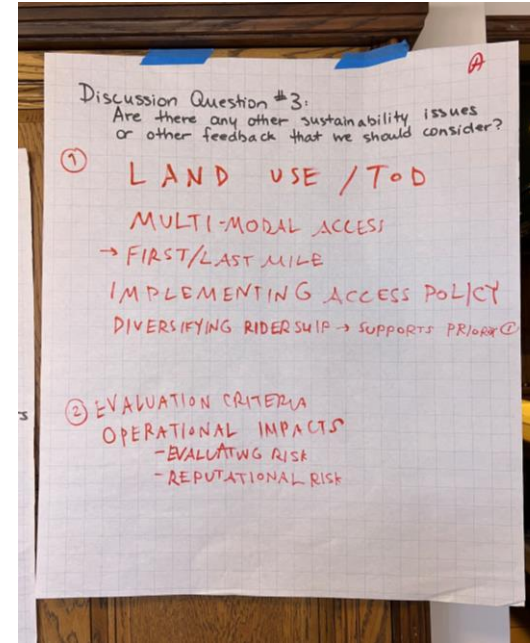 A
Discussion Question #3:
Are there any other sustainability issues
or other feedback that we should consider?
1 LAND USE / TOD
MULTI-MODAL ACCESS
→ FIRST/LAST MILE
IMPLEMENTING ACCESS POLICY
DIVERSIFYING RIDERSHIP → SUPPORTS
2 EVALUATION CRITERIA
OPERATIONAL IMPACTS
- EVALUATING RISK
- REPUTATIONAL RISK